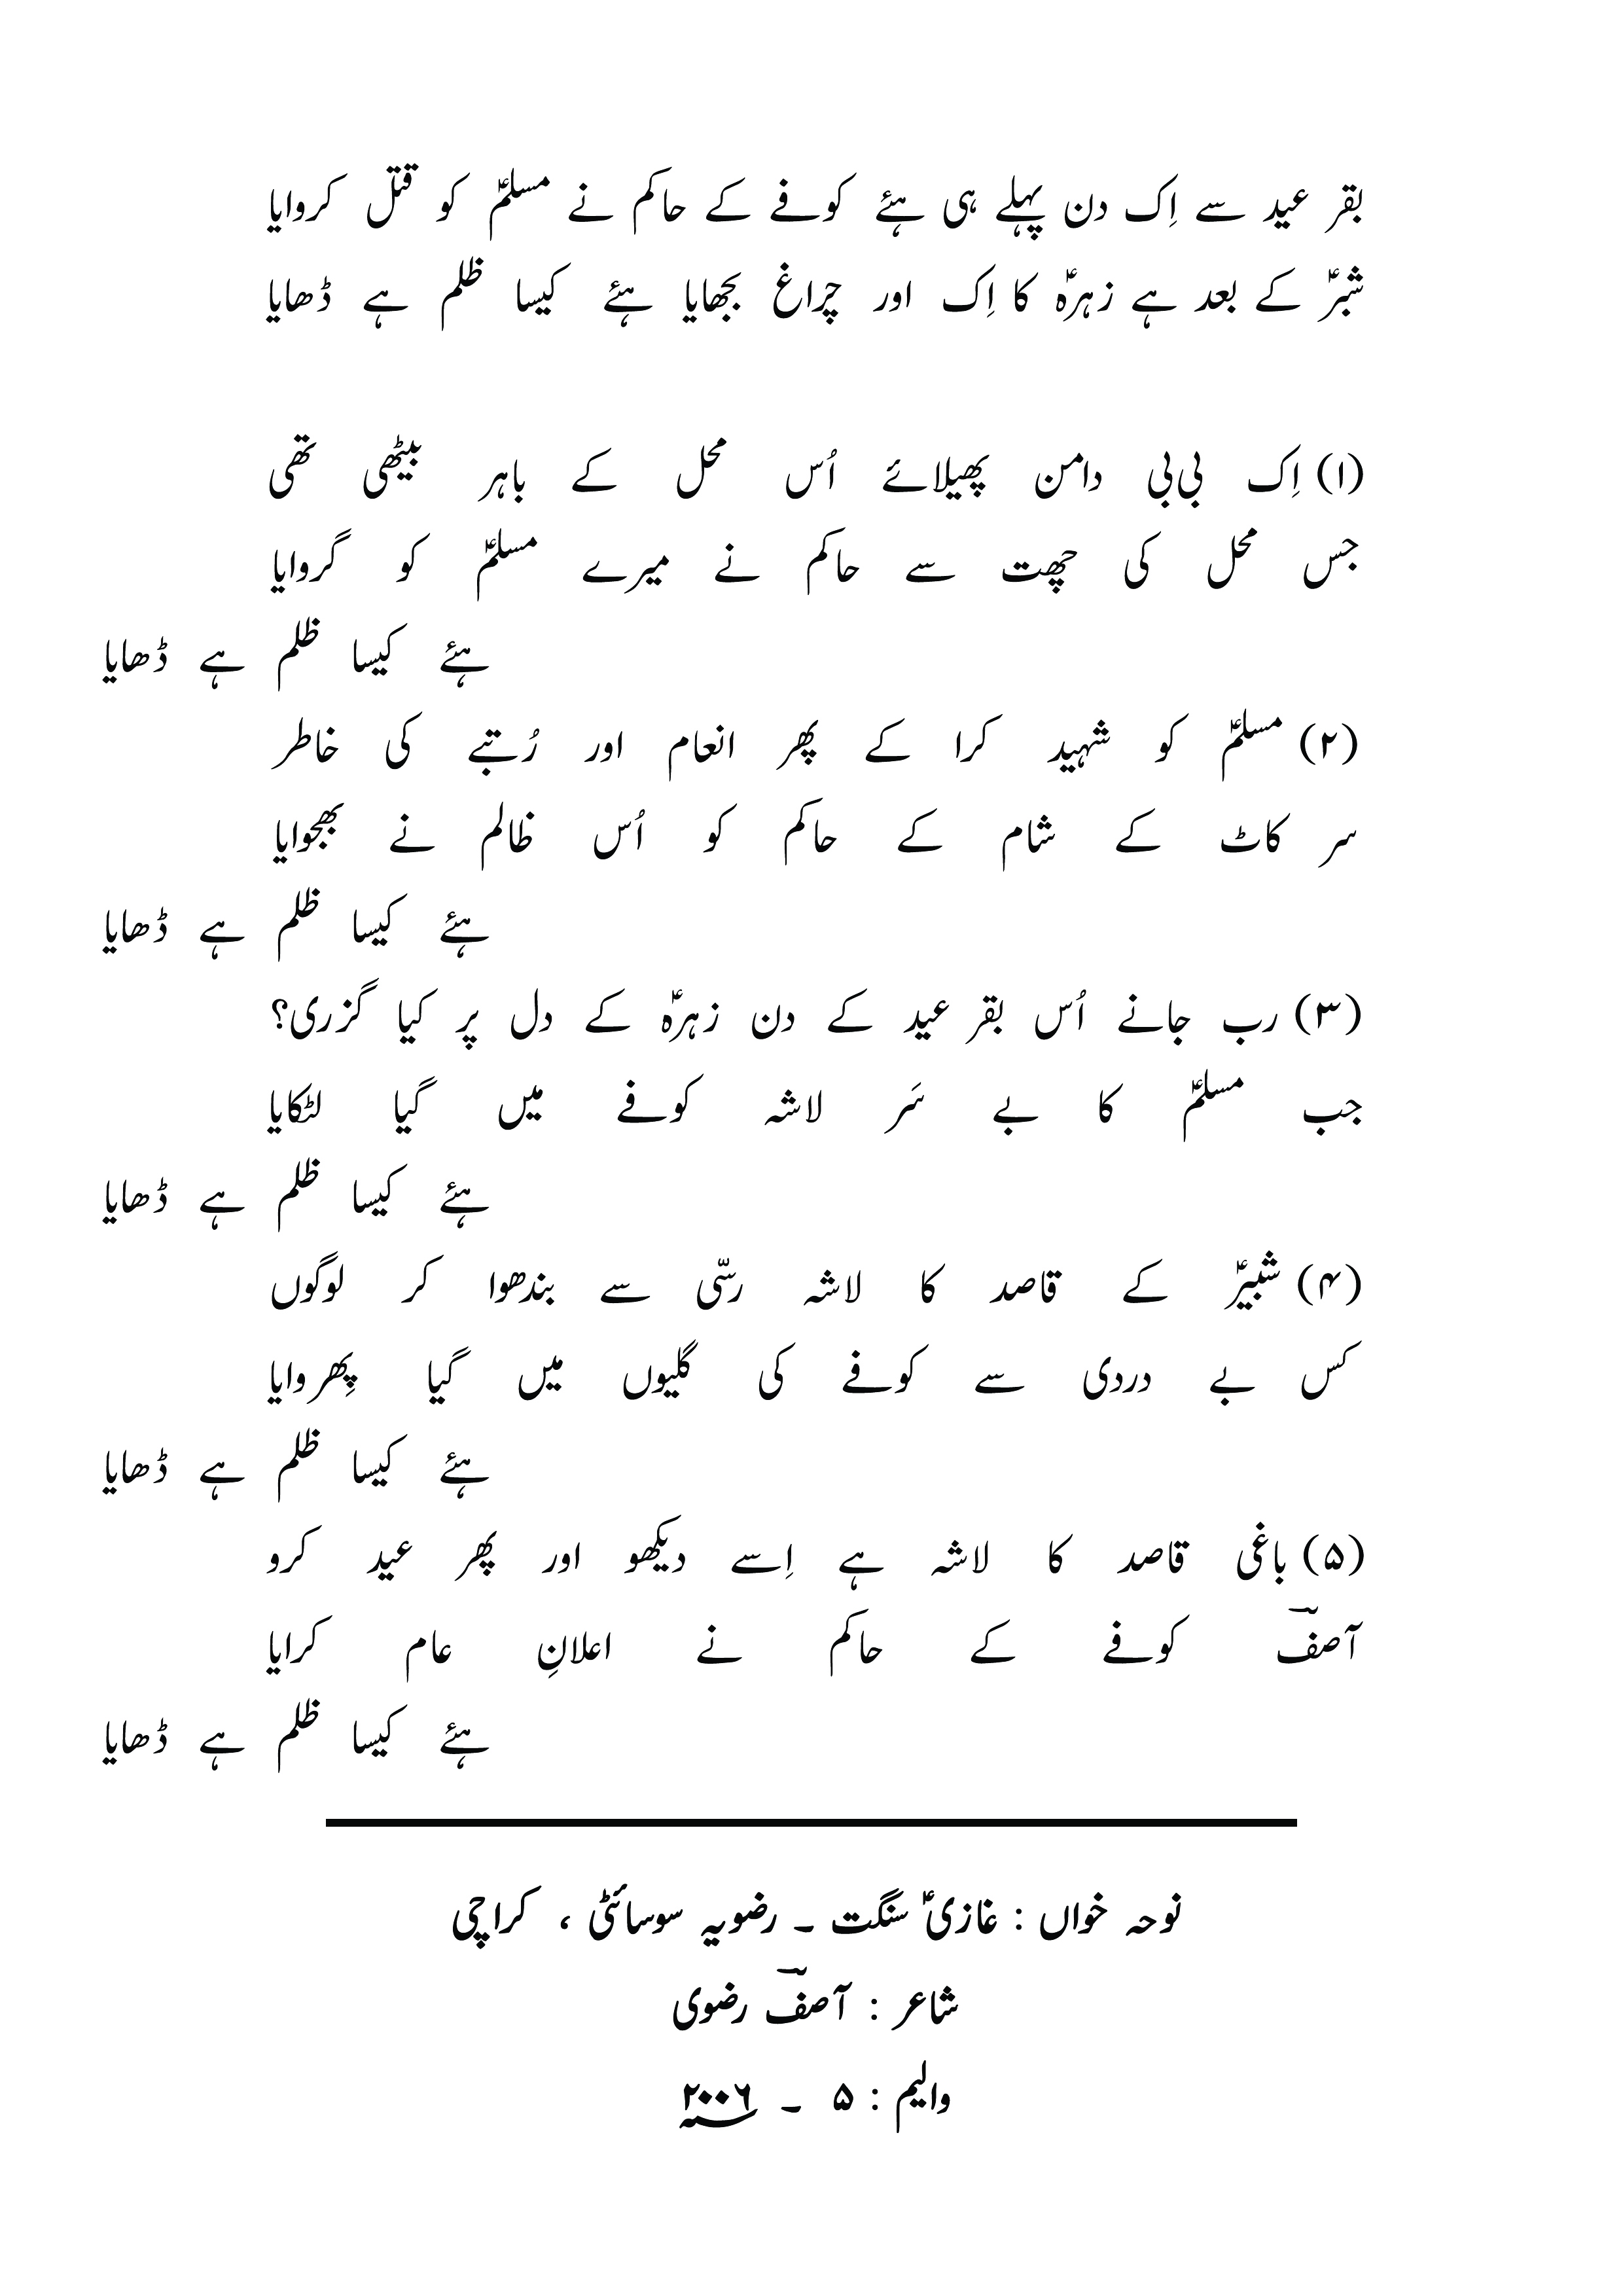 بقر عید سے اِک دن پہلے ہی ہئے کوفے کے حاکم نے مسلمؑ کو قتل کروایا
شبرؑ کے بعد ہے زہرہؑ کا اِک اور چراغ بجھایا ہئے کیسا ظلم ہے ڈھایا
(۱) اِک بی بی دامن پھیلائے اُس محل کے باہر بیٹھی تھی
جس محل کی چھت سے حاکم نے میرے مسلمؑ کو گروایا
ہئے کیسا ظلم ہے ڈھایا
(۲) مسلمؑ کو شہید کرا کے پھر انعام اور رُتبے کی خاطر
سر کاٹ کے شام کے حاکم کو اُس ظالم نے بھجوایا
ہئے کیسا ظلم ہے ڈھایا
(۳) رب جانے اُس بقر عید کے دن زہرہؑ کے دل پر کیا گزری؟
جب مسلمؑ کا بے سَر لاشہ کوفے میں گیا لٹکایا
ہئے کیسا ظلم ہے ڈھایا
(۴) شبیرؑ کے قاصد کا لاشہ رسّی سے بندھوا کر لوگوں
کس بے دردی سے کوفے کی گلیوں میں گیا پِھروایا
ہئے کیسا ظلم ہے ڈھایا
(۵) باغی قاصد کا لاشہ ہے اِسے دیکھو اور پھر عید کرو
آصفؔ کوفے کے حاکم نے اعلانِ عام کرایا
ہئے کیسا ظلم ہے ڈھایا
نوحہ خواں : غازیؑ سنگت ۔ رضویہ سوسائٹی ، کراچی
شاعر : آصفؔ رضوی
والیم : ۵ ۔ ۲۰۰۶؁